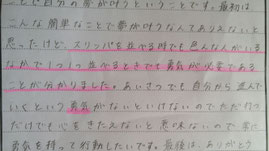 ことで自分の夢が叶うということです。最初は
こんな簡単なことで夢が叶うなんてありえないと
思ったけど、スリッパを並べる時でも色んな人がいる
なかで1つ1つ並べるときでも勇気が必要である
ことが分かりました。あいさつでも自分から進んで
いくという勇気がないといけないのでただ行う
だけでも心をきたえないと意味ないので常に
勇気を持って行動したいです。最後は、ありがとう